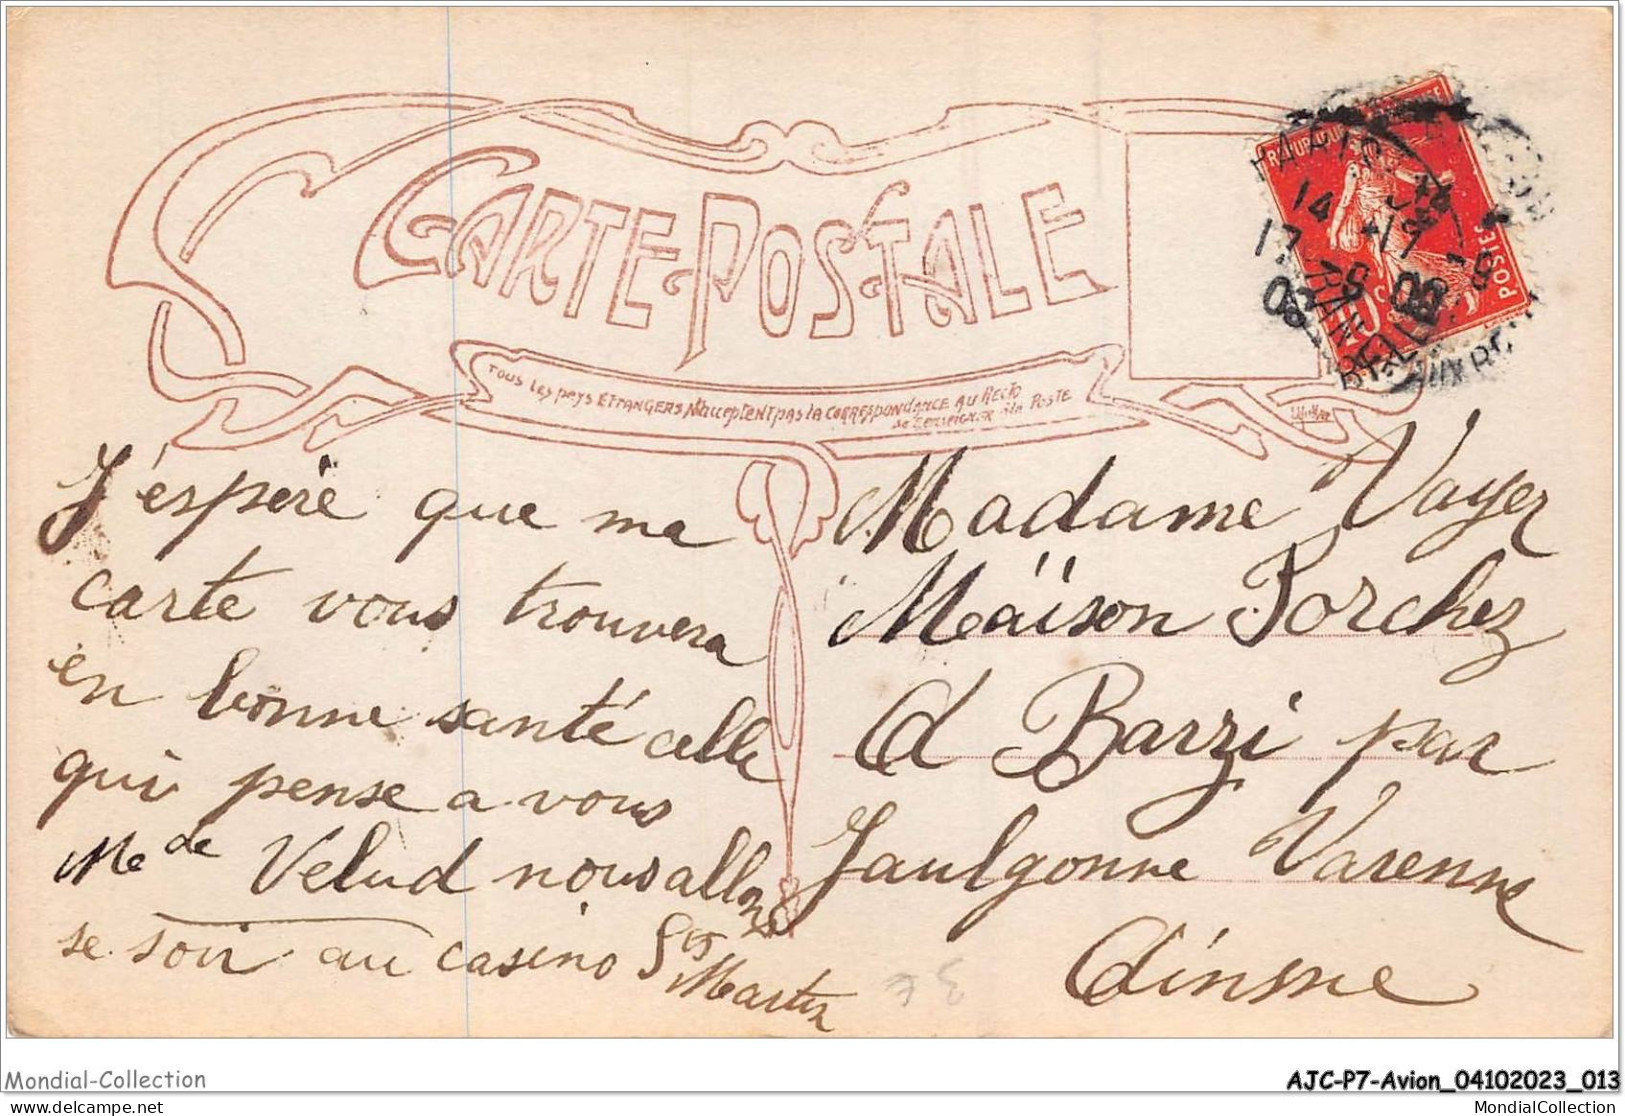 CARTE POSTALE
TOUS LES PAYS ETRANGERS N'ACCEPTENT PAS LA CORRESPONDANCE AU RECTO
SE RENSEIGNER A LA POSTE
REPUBLIQUE
POSTES
10c
14
17
08
J'espère que ma
carte vous trouvera
en bonne santé celle
qui pense a vous
Me de Velud nous allons
se soir au casino St
Martin
Madame Vayer
Maïson Porchez
a Barzi par
Jaulgonne Varenne
Ainsne
Mondial-Collection
AJC-P7-Avion_04102023_013
delcampe.net
MondialCollection